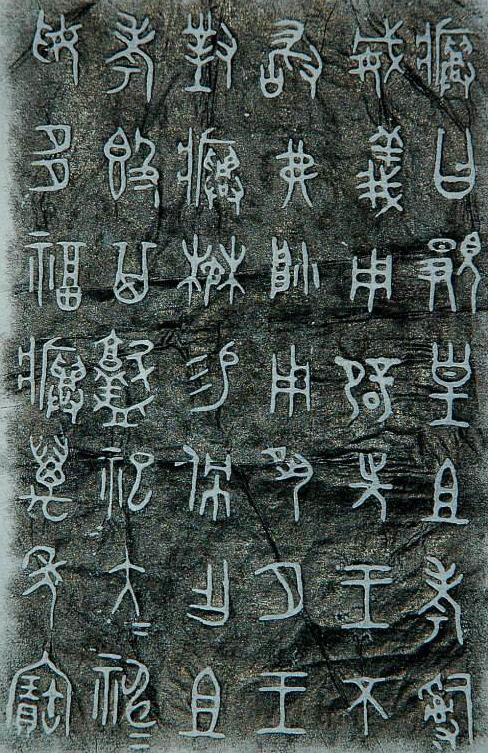 𤼈曰覭皇且考𤔲
威義用辟先王不
敢弗帥用夙夕王
對𤼈楙易佩乍且
考𣪘其𢽍祀大=神=
妥多福𤼈萬年寶